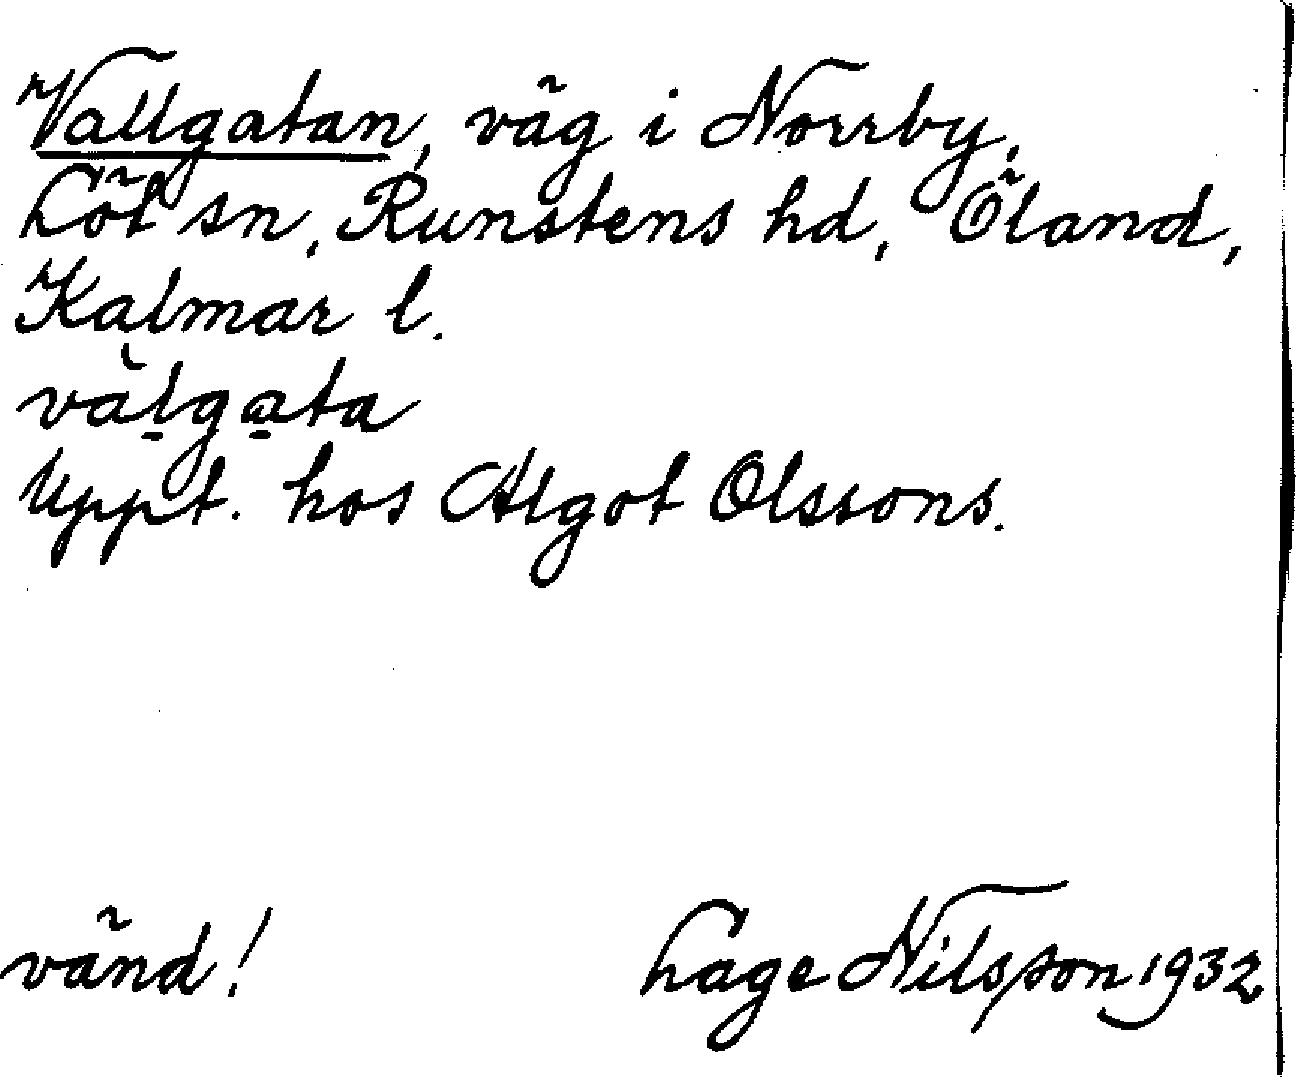 Vallgatan, väg i Norrby,
Löt sn, Runstens hd, Öland,
Kalmar l.
vàl̠ga̠ta
Uppt. hos Algot Olssons.
vänd!
Lage Nilsson 1932